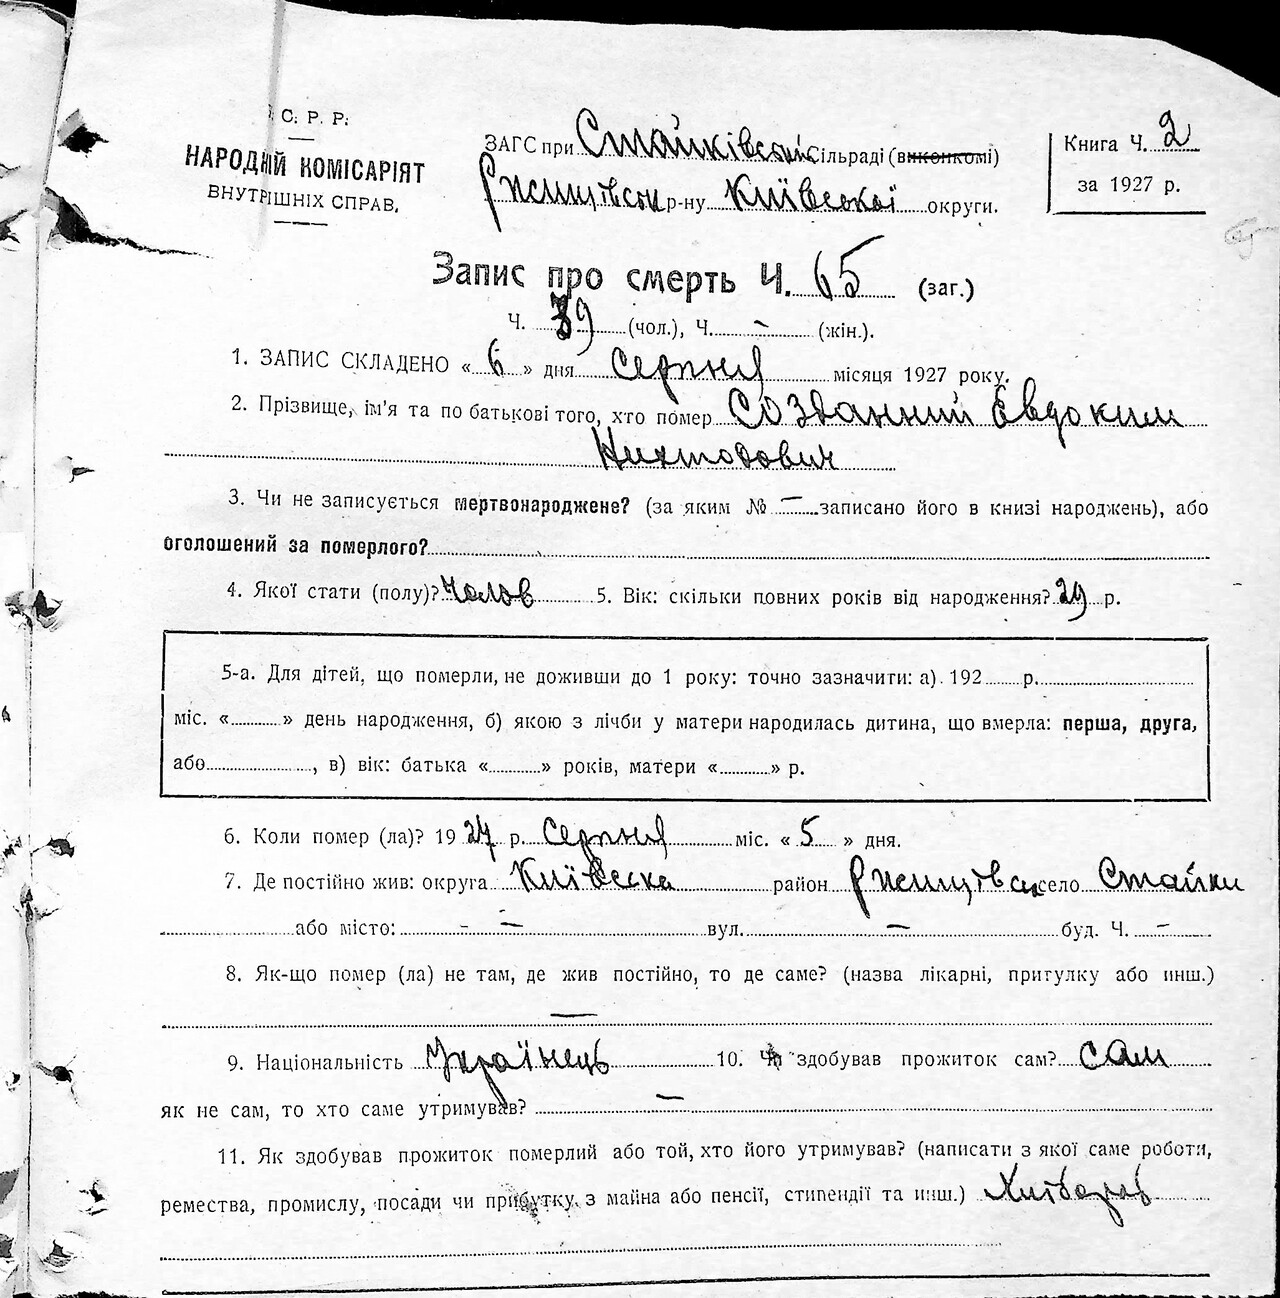 С. Р. Р.
НАРОДНІЙ КОМІСАРІЯТ
ВНУТРІШНІХ СПРАВ.
ЗАГС при Стайківській сільраді (виконкомі)
Ржищівськ р-ну Київської округи.
Книга Ч. 2
за 1927 р.
Запис про смерть Ч. 65 (заг.)
Ч. 39 (чол.), Ч. — (жін.).
1. ЗАПИС СКЛАДЕНО « 6 » дня серпня місяця 1927 року.
2. Прізвище, ім'я та по батькові того, хто помер Созданний Євдоким
3. Чи не записується мертвонароджене? (за яким № — записано його в книзі народжень), або
оголошений за померлого?
4. Якої стати (полу)? Чолов 5. Вік: скільки повних років від народження? 29 р.
5-а. Для дітей, що померли, не доживши до 1 року: точно зазначити: а). 192 р.
міс. « » день народження, б) якою з лічби у матери народилась дитина, що вмерла: перша, друга,
або , в) вік: батька « » років, матери « » р.
6. Коли помер (ла)? 19 27 р. Серпня міс. « 5 » дня.
7. Де постійно жив: округа Київська район Ржищівськ село Стайки
або місто: — вул. — буд. Ч. —
8. Як-що помер (ла) не там, де жив постійно, то де саме? (назва лікарні, притулку або инш.)
—
9. Національність Українець 10. Чи здобував прожиток сам? сам
як не сам, то хто саме утримував? —
11. Як здобував прожиток померлий або той, хто його утримував? (написати з якої саме роботи,
ремества, промислу, посади чи прибутку з майна або пенсії, стипендії та инш.) Хлібороб